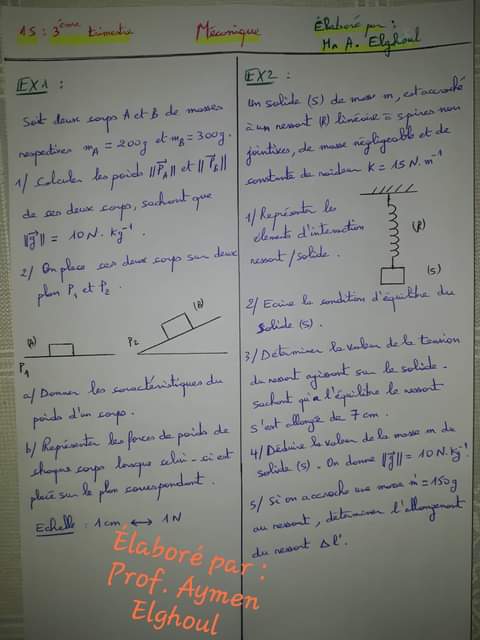 1S : 3ème trimestre
Mécanique
Élaboré par :
Mr A. Elghoul
EX1 :
Soit deux corps A et B de masses
respectives mA = 200g et mB = 300g.
1/ Calculer les poids ||P⃗A|| et ||P⃗B||
de ces deux corps, sachant que
||g⃗|| = 10 N. kg⁻¹.
2/ On place ces deux corps sur deux
plan P1 et P2.
(A)
P1
(B)
P2
a/ Donner les caractéristiques du
poids d'un corps.
b/ Représenter les forces de poids de
chaque corps lorsque celui-ci est
placé sur le plan correspondant.
Echelle : 1cm ⟷ 1N
EX2 :
Un solide (S) de masse m, est accroché
à un ressort (R) linéaire à spires non
jointives, de masse négligeable et de
constante de raideur K = 15 N. m⁻¹
1/ Représenter les
éléments d'interaction
ressort / solide.
(R)
(S)
2/ Ecrire la condition d'équilibre du
solide (S).
3/ Déterminer la valeur de la tension
du ressort agissant sur le solide.
sachant qu'à l'équilibre le ressort
s'est allongé de 7 cm.
4/ Déduire la valeur de la masse m du
solide (S). On donne ||g⃗|| = 10 N. kg⁻¹.
5/ Si on accroche une masse m' = 150g
au ressort, déterminer l'allongement
du ressort Δl'.
Élaboré par :
Prof. Aymen
Elghoul